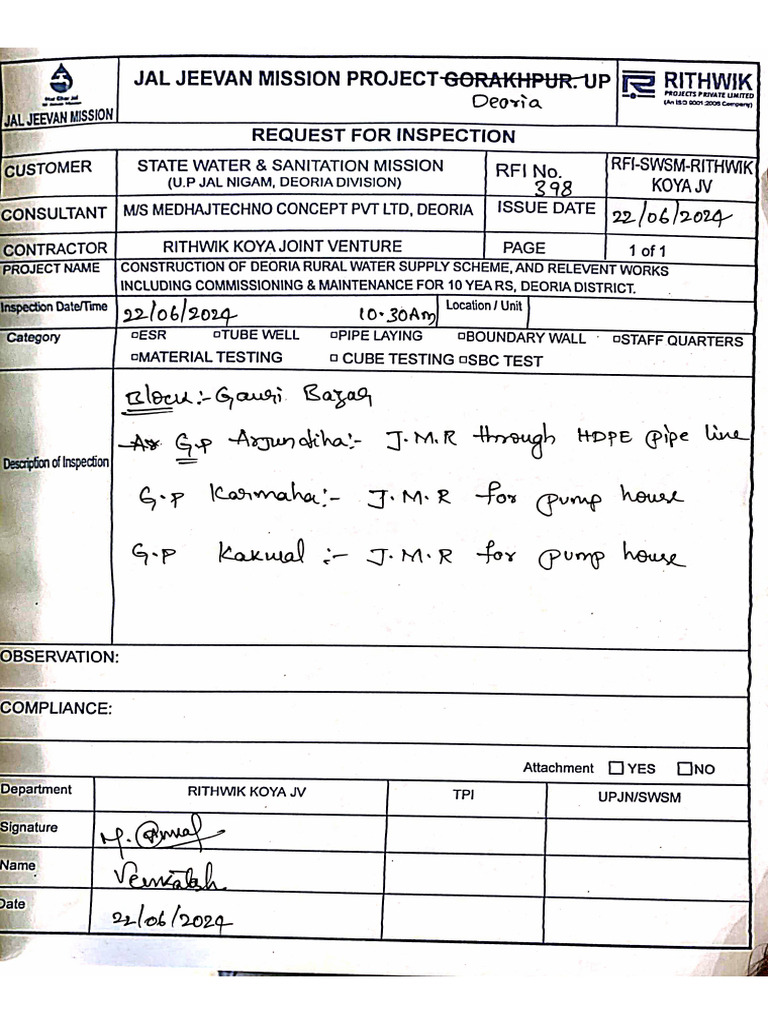 JAL JEEVAN MISSION PROJECT GORAKHPUR. UP
Deoria
Har Ghar Jal
JAL JEEVAN MISSION
RITHWIK
PROJECTS PRIVATE LIMITED
(An ISO 9001:2008 Company)
REQUEST FOR INSPECTION
CUSTOMER STATE WATER & SANITATION MISSION (U.P JAL NIGAM, DEORIA DIVISION) RFI No. 398 RFI-SWSM-RITHWIK KOYA JV
CONSULTANT M/S MEDHAJTECHNO CONCEPT PVT LTD, DEORIA ISSUE DATE 22/06/2024
CONTRACTOR RITHWIK KOYA JOINT VENTURE PAGE 1 of 1
PROJECT NAME CONSTRUCTION OF DEORIA RURAL WATER SUPPLY SCHEME, AND RELEVENT WORKS
INCLUDING COMMISSIONING & MAINTENANCE FOR 10 YEA RS, DEORIA DISTRICT.
Inspection Date/Time 22/06/2024 10.30Am Location / Unit
Category □ESR □TUBE WELL □PIPE LAYING □BOUNDARY WALL □STAFF QUARTERS
□MATERIAL TESTING □ CUBE TESTING □SBC TEST
Description of Inspection
Block:- Gauri Bazar
Ar G.P Arjundiha:- J.M.R through HDPE pipe line
G.P Karmaha:- J.M.R for pump house
G.P Kakwal :- J.M.R for pump house
OBSERVATION:
COMPLIANCE:
Attachment □ YES □ NO
Department RITHWIK KOYA JV TPI UPJN/SWSM
Signature
Name Venkatesh
Date 22/06/2024